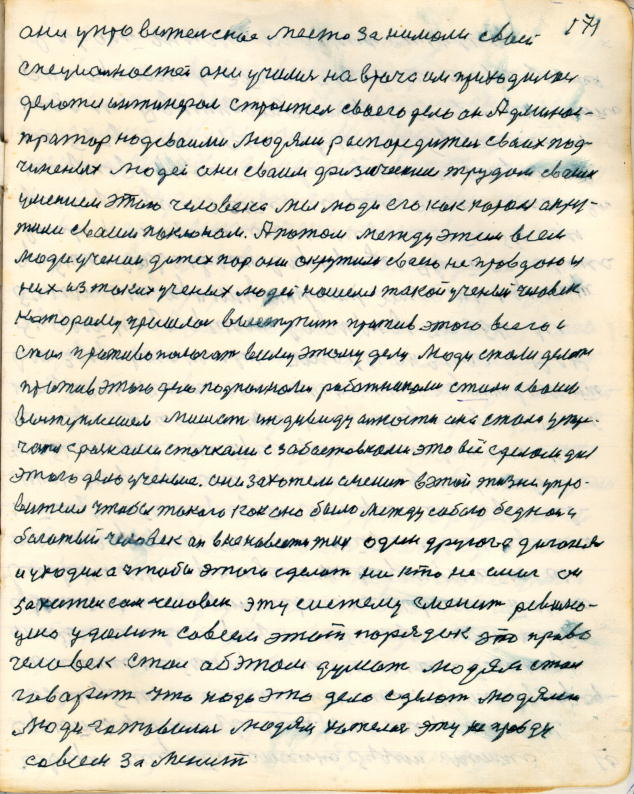 171
они управительское место занимали своей
специальностей они учился на врача им приходилос
делати интинером строител своего дела он Админис-
тратор нодсваими людями распоредител сваих под-
чиненых людей они сваим физическим трудом сваим
умением этаго человека мы люди его как
сваим поклоном. А потом между этим всем
люди учении до тех пор они окружили сваею не правдаю и
них из таких ученых людей нашелся такой ученый человек
катораму пришлос выступит против этого всего и
стал противополагат всему этому делу люди стали делат
против этого дела подпольноми работникоми стали сваим
выступлением мешат индивидуалности она стала
с рознами сточками с забастовкоми это всё сделоли для
этаго дело ученые. они захотели сменит в этой жизни упро-
вителя чтобы токого как оно было между сабою бедной и
багатый человек он вненовести жил один другога догонял
и уходил а чтобы этого сделат ни кто не смог он
захотел сам человек эту систему сменит револю-
цию удалит совсем этот порядок это право
человек стал аб этом думат людям стал
гаварит что надо это дело сделат людями
люди готовилис людям хотелос эту не правду
совсем заменит